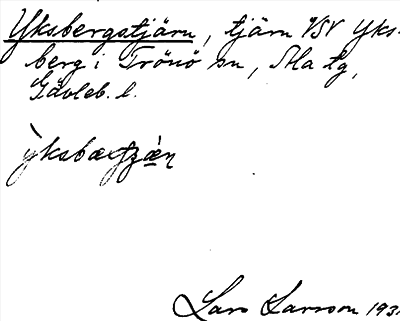 Yksbergstjärn, tjärn VSV Yks-
berg i Trönö sn, Ala tg,
Gävleb. l.
ỳksbæstjæ̀n
Lars Larsson 193